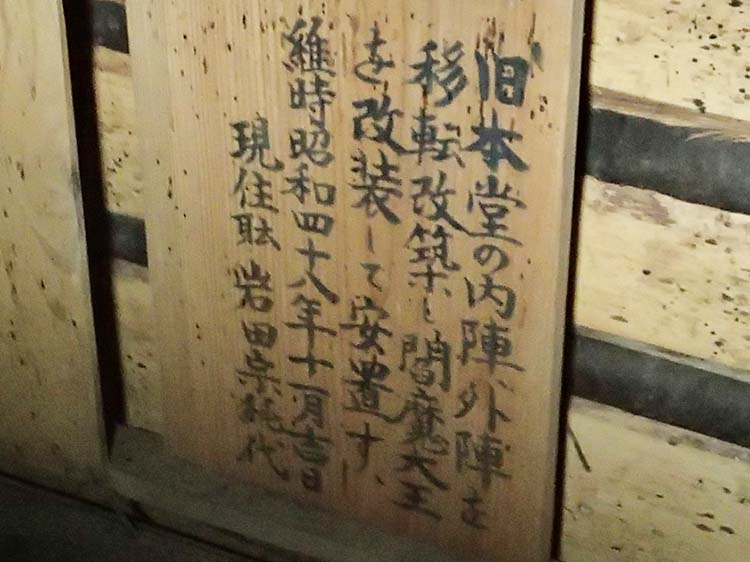 旧本堂の内陣外陣を
移転改築し閻魔大王
を改装して安置す、
維時昭和四十八年十一月吉日
現住 岩田 代